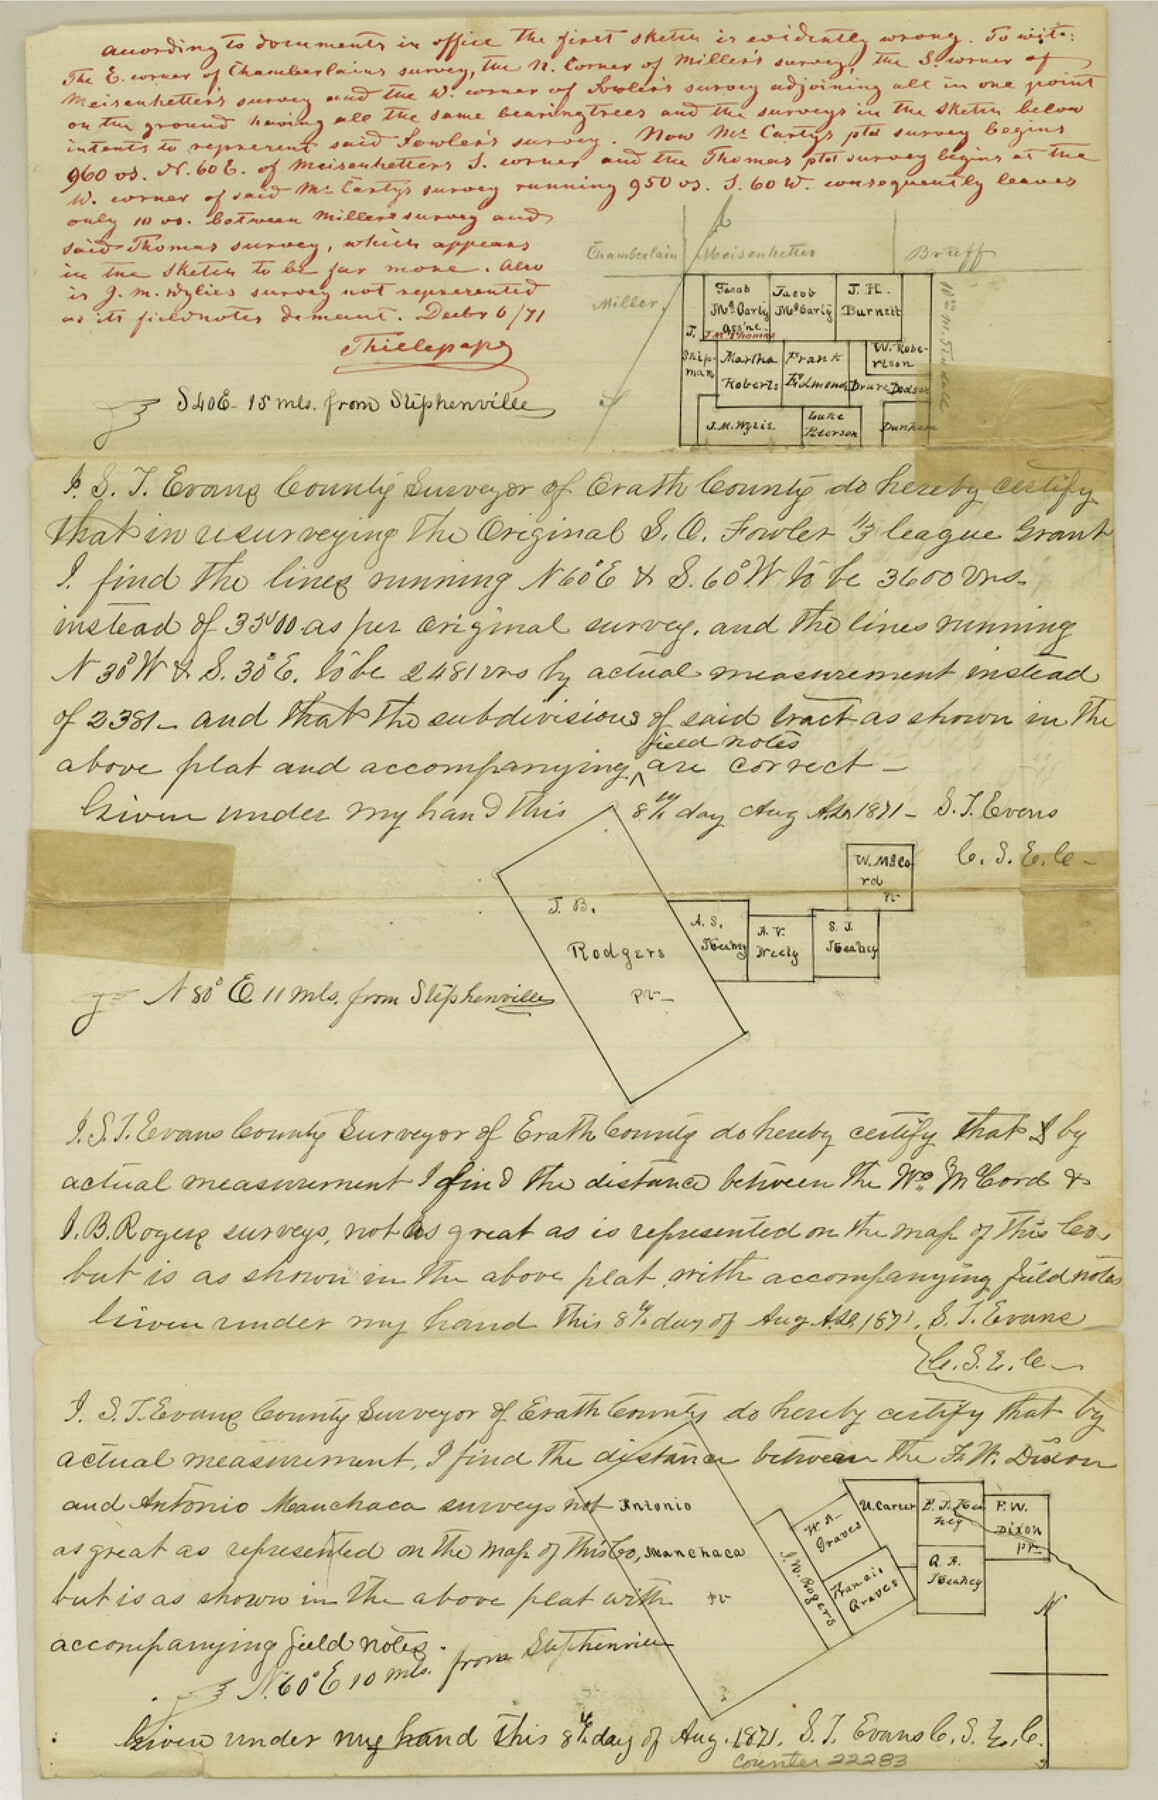 According to documents in office the first sketch is evidently wrong. To wit:
The E. corner of Chamberlains survey, the N. Corner of Miller's survey, the S. corner of
Meisenhetter's survey and the W. corner of Fowler's survey adjoining all in one point
on the ground having all the same bearing trees and the surveys in the sketch below
intents to represent said Fowler's survey. Now Mc Cartys ptd survey begins
960 vs. N. 60 E. of Meisenhetters S. corner and the Thomas ptd survey begins at the
W. corner of said Mc Cartys survey running 950 vs. S. 60 W. consequently leaves
only 10 vs. between Millers survey and
said Thomas survey, which appears
in the sketch to be far more. Also
is J. M. Wylies survey not represented
as its fieldnotes demant. Decbr 6/71
Thielepape
Chamberlain
Meisenhetter
Bruff
Miller
Jacob
McCarty
assne
J. M. Thomas
Jacob
McCarty
J. H.
Burnett
J.
Skip-
man
Martha
Roberts
Frank
Edmonds
W. Robe-
rtson
Drury Dodson
J. M. Wylie
Luke
Peterson
Dunham
Wm. M. Tindall
S 40 E 15 mls. from Stephenville
I. S. T. Evans County Surveyor of Erath County do hereby certify
that in resurveying the Original S. O. Fowler 1/3 league Grant
I find the lines running N 60° E & S. 60° W to be 3600 vrs
instead of 3500 as per original survey. and the lines running
N 30° W & S. 30° E. to be 2481 vrs by actual measurement instead
of 2381 — and that the subdivisions of said tract as shown in the
above plat and accompanying field notes are correct —
Given under my hand this 8th day Aug A.D. 1871 — S. T. Evans
C. S. E. C —
W. McCo
rd
Pt
J. B.
Rodgers
Pt —
A. S.
Keahey
A. V.
Neely
S. J.
Keahey
N 80° E 11 mls. from Stephenville
I. S. T. Evans County Surveyor of Erath County do hereby certify that I by
actual measurement I find the distance between the Wm McCord &
J. B. Rogers surveys, not as great as is represented on the map of this Co,
but is as shown in the above plat with accompanying field notes
Given under my hand this 8th day of Aug A.D. 1871. S. T. Evans
C. S. E. C —
I. S. T. Evans County Surveyor of Erath County do hereby certify that by
actual measurement, I find the distance between the F. W. Dixon
and Antonio Manchaca surveys not
as great as represented on the map of this Co,
but is as shown in the above plat with
accompanying field notes.
Antonio
Manchaca
Pt
J. W. Rogers
W. A.
Graves
Francis
Graves
U. Carter
E. J. Kea
hey
A. A.
Keahey
F. W.
Dixon
Pt —
N
N. 60° E 10 mls. from Stephenville
Given under my hand this 8th day of Aug. 1871. S. T. Evans C. S. E. C.
Counter 22283